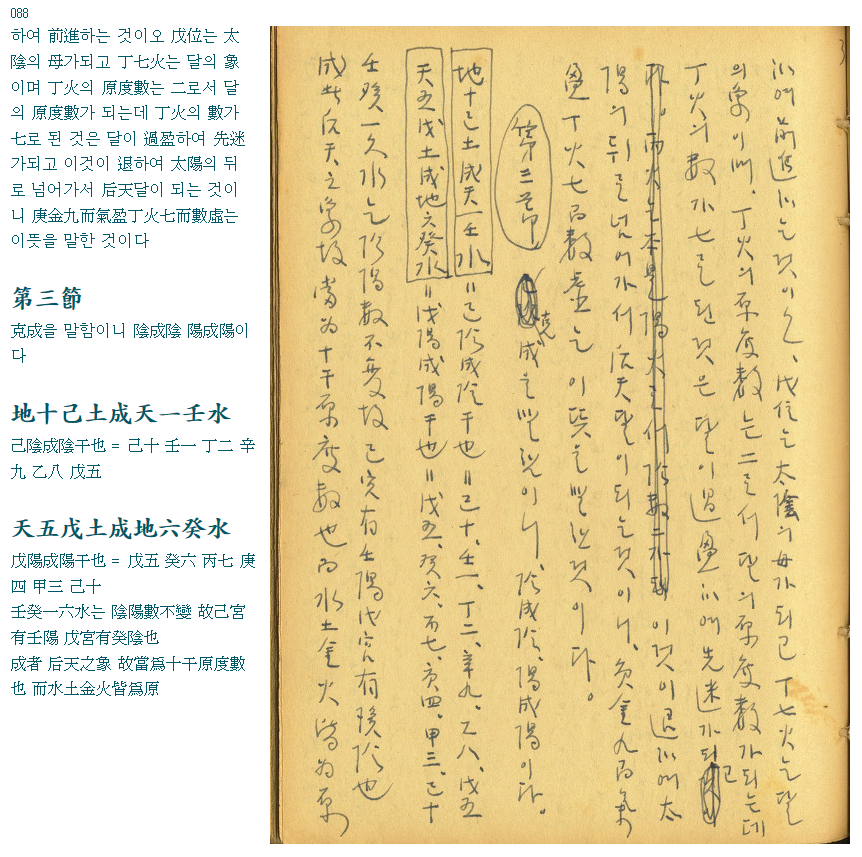 088
하여 前進하는 것이오 戊位는 太
陰의 母가되고 丁七火는 달의 象
이며 丁火의 原度數는 二로서 달
의 原度數가 되는데 丁火의 數가
七로 된 것은 달이 過盈하여 先迷
가되고 이것이 退하여 太陽의 뒤
로 넘어가서 后天달이 되는 것이
니 庚金九而氣盈丁火七而數虛는
이뜻을 말한 것이다
第三節
克成을 말함이니 陰成陰 陽成陽이
다
地十己土成天一壬水
己陰成陰干也 = 己十 壬一 丁二 辛
九 乙八 戊五
天五戊土成地六癸水
戊陽成陽干也 = 戊五 癸六 丙七 庚
四 甲三 己十
壬癸一六水는 陰陽數不變 故己宮
有壬陽 戊宮有癸陰也
成者 后天之象 故當爲十干原度數
也 而水土金火皆爲原
하여 前進하는 것이오、戊位는 太陰의 母가되고 丁七火는 달
의 象이며、丁火의 原度數는 二로서 달의 原度數가 되는데
丁火의 數가 七로 된 것은 달이 過盈하여 先迷가되고
丙火는 本是 陽火로서 陰數二가 이것이 退하여 太
陽의 뒤로 넘어가서 后天달이 되는것이니、庚金九而氣
盈丁火七而數虛는 이뜻을 말한것이다。
第三節 克成을 말함이니、陰成陰、陽成陽이다。
地十己土成天一壬水 = 己陰成陰干也 = 己十、壬一、丁二、辛九、乙八、戊五
天五戊土成地六癸水 = 戊陽成陽干也 = 戊五、癸六、丙七、庚四、甲三、己十
壬癸一六水는 陰陽數不變故己宮有壬陽戊宮有癸陰也
成者后天之象故當為十干原度數也而水土金火皆為原